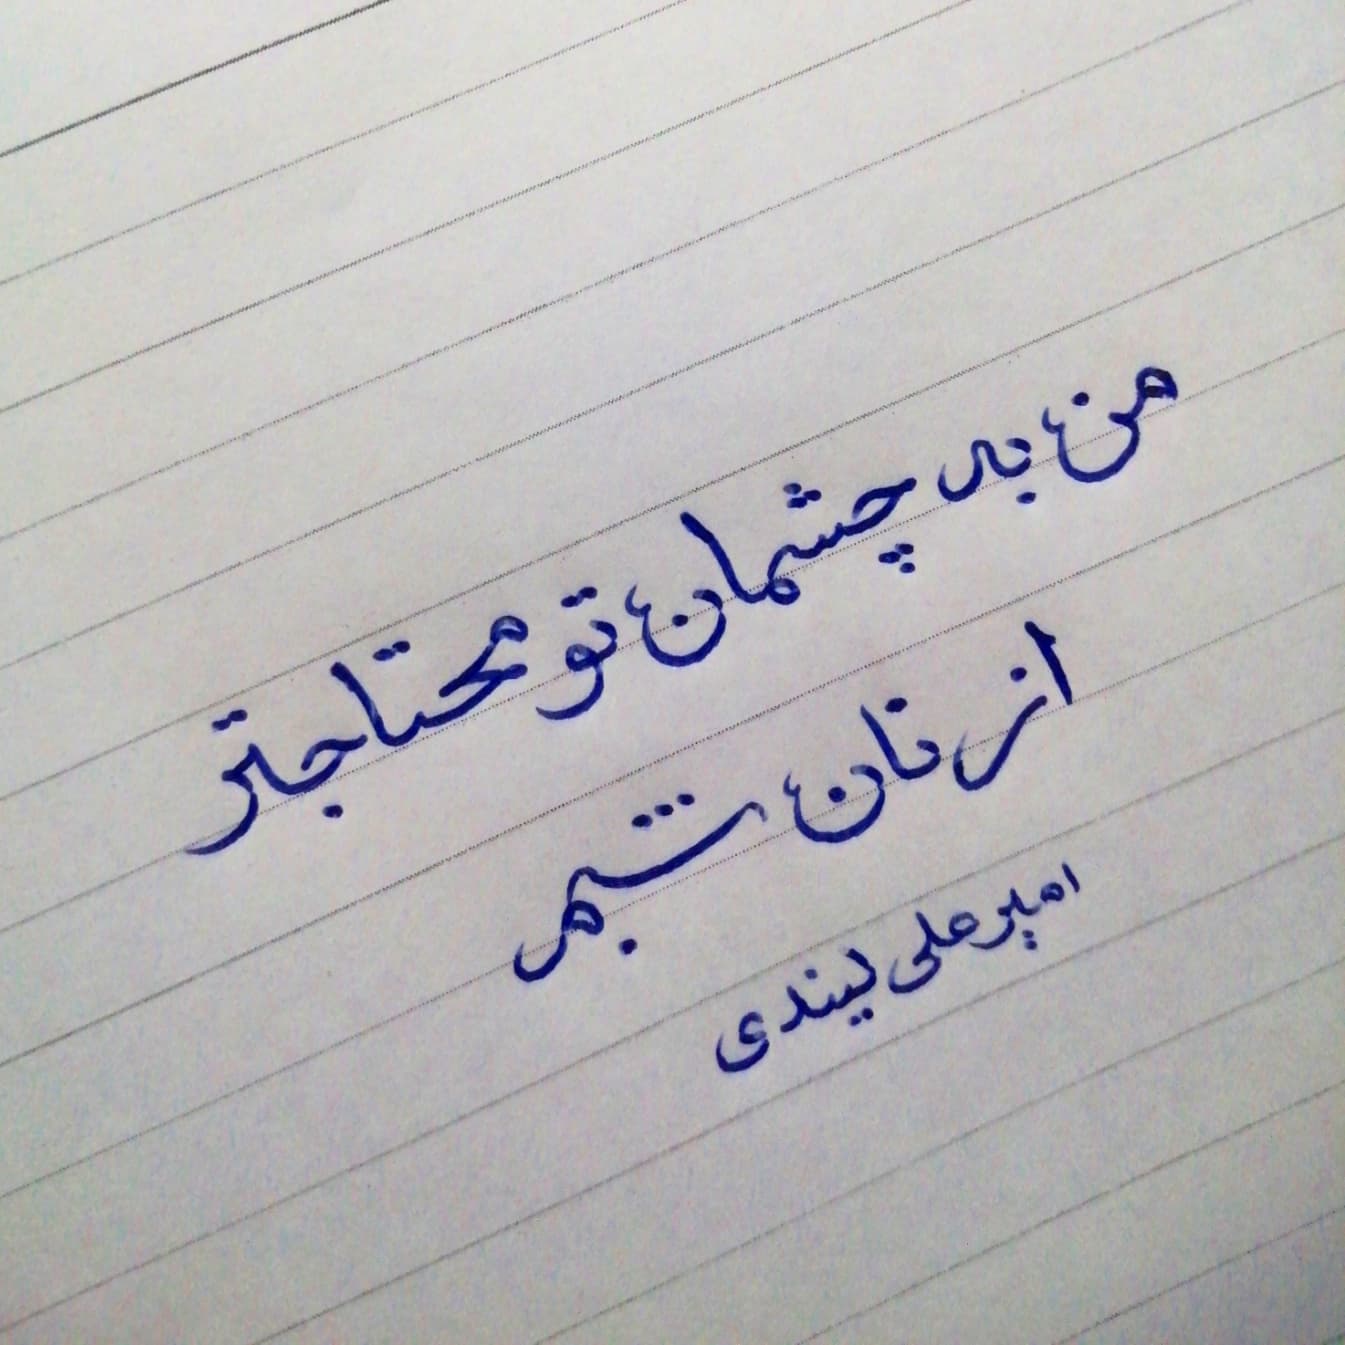 من به چشمان تو محتاجتر
از نان شبم
امیرعلی